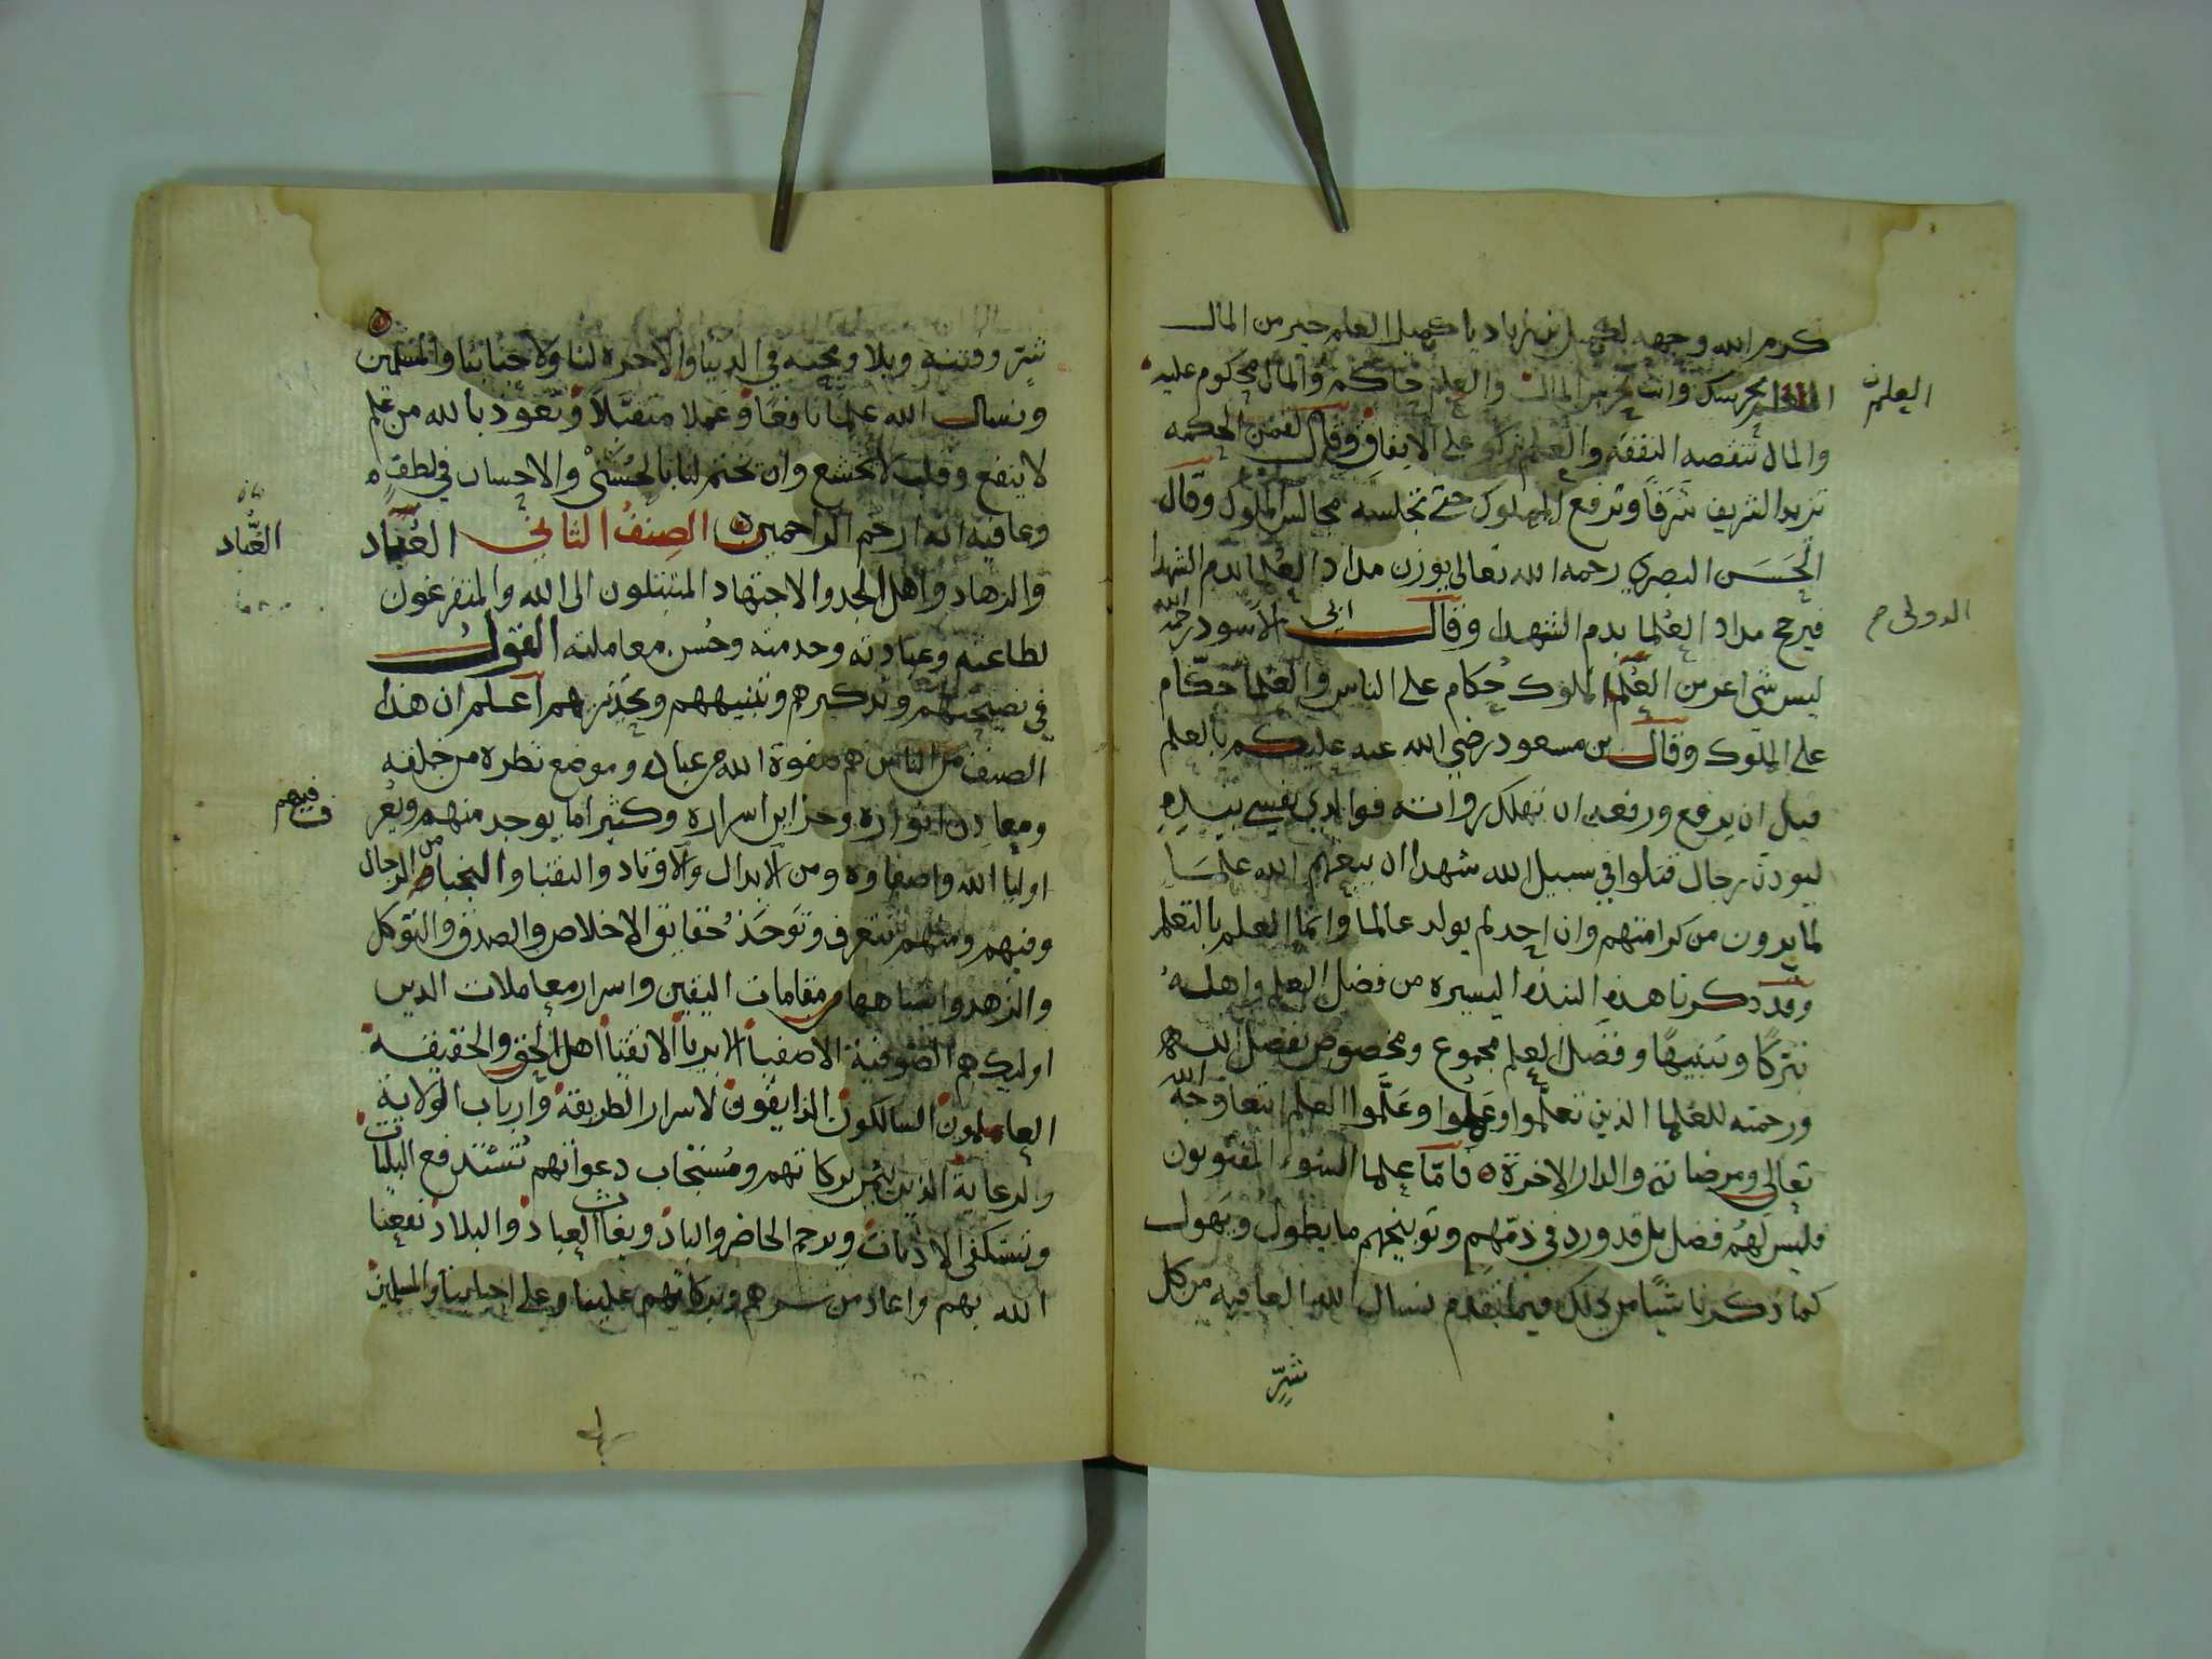 كرم الله وجهه لكميل بن زياد يا كميل العلم خير من المال
العلم يحرسك وانت تحرس المال والعلم حاكم والمال محكوم عليه
العلم
والمال تنقصه النفقه والعلم يزكو على الانفاق وقال لقمن الحكمه
تزيد الشريف شرفًا وترفع المملوك حتى تجلسه مجالس الملوك وقال
الحسن البصري رحمه الله تعالى يوزن مداد العلما بدم الشهدا
فيرجح مداد العلما بدم الشهدا وقال ابي الاسود رحمه الله
الدولى
ليس شي اعز من العلم الملوك حكام على الناس والعلما حكام
على الملوك وقال بن مسعود رضي الله عنه عليكم بالعلم
قبل ان يرفع ورفعه ان تهلك رواته فوالذي نفسي بيده
ليودن رجال قتلوا في سبيل الله شهدا ان يبعثهم الله علما
لما يرون من كرامتهم وان احد لم يولد عالما وانما العلم بالتعلم
وقد ذكرنا هذه النبذه اليسيره من فضل العلم واهله
تبركًا وتنبيهًا وفضل العلم مجموع ومخصوص بفضل الله
ورحمته للعلما الذين تعلّموا وعملوا وعلّموا العلم ابتغا وجه الله
تعالى ومرضاته والدار الاخرة ه فامّا علما السوء المفتونون
فليس لهم فضل بل قد ورد في ذمّهم وتوبيخهم ما يطول ويهول
كما ذكرنا شيًا من ذلك فيما تقدم نسال الله العافيه من كل
شرّ
شرّ وفتنه وبلا ومحنه في الدنيا والاخره لنا ولاحبابنا والمسلمين
ونسال الله علمًا نافعًا وعملا متقبلا ونعوذ بالله من علم
لا ينفع وقلب لا يخشع وان يختم لنا بالحسنى والاحسان في لطف
وعافيه انه ارحم الراحمين ه الصنف الثاني العُبّاد
العُبّاد
والزهاد واهل الجد والاجتهاد المتبتلون الى الله والمتفرغون
لطاعته وعبادته وخدمته وحُسن معاملته القول
في نصيحتهم وتذكيرهم وتنبيههم وتحذيرهم اعلم ان هذا
الصنف من الناس هم صفوة الله من عباده وموضع نظره من خلقه
ومعادن انواره وخزاين اسراره وكثيرا ما يوجد منهم
ففيهم
اوليا الله واصفاوه ومن الابدال والاوتاد والنقبا والنجبا من الرجال
وفيهم ومنهم تتعرف وتوخذ حقايق الاخلاص والصدق والتوكل
والزهد واشباهها من مقامات اليقين واسرار معاملات الدين
اوليك هم الصوفية الاصفيا الابريا الاتقيا اهل الحق والحقيقة
العاملون السالكون الذايقون لاسرار الطريقة وارباب الولاية
والرعاية الذين بيُمن بركاتهم ومُستجاب دعواتهم تُستدفع البليات
وتستكفى الاذيات ويرحم الحاضر والباد ويغاث العباد والبلاد نفعنا
الله بهم واعاد من سرهم وبركاتهم علينا وعلى احبابنا والمسلمين